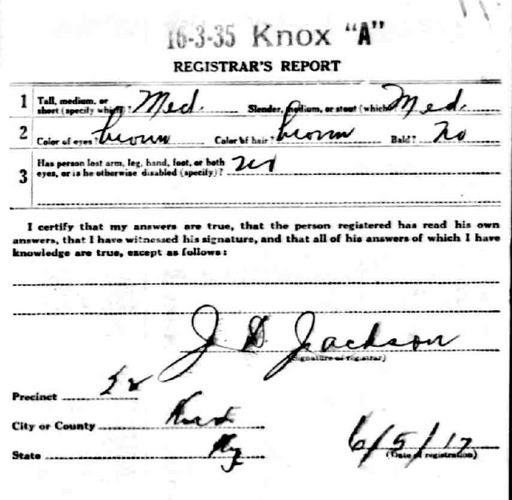 16-3-35 Knox "A"
REGISTRAR'S REPORT
1 Tall, medium, or short (specify which)? Med. Slender, medium, or stout (which)? Med.
2 Color of eyes? brown Color of hair? brown Bald? no
3 Has person lost arm, leg, hand, foot, or both eyes, or is he otherwise disabled (specify)? no
I certify that my answers are true, that the person registered has read his own
answers, that I have witnessed his signature, and that all of his answers of which I have
knowledge are true, except as follows:
J D Jackson
(Signature of registrar)
Precinct
City or County Knox
State Ky 6/5/17
(Date of registration)